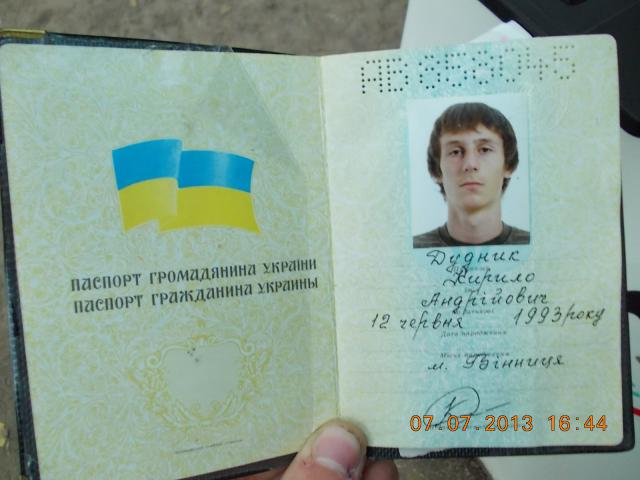 ПАСПОРТ ГРОМАДЯНИНА УКРАЇНИ
ПАСПОРТ ГРАЖДАНИНА УКРАИНЫ
АВ 858045
Дудник
Кирило
Андрійович
12 червня 1993 року
Дата народження
м. Вінниця
07.07.2013 16:44